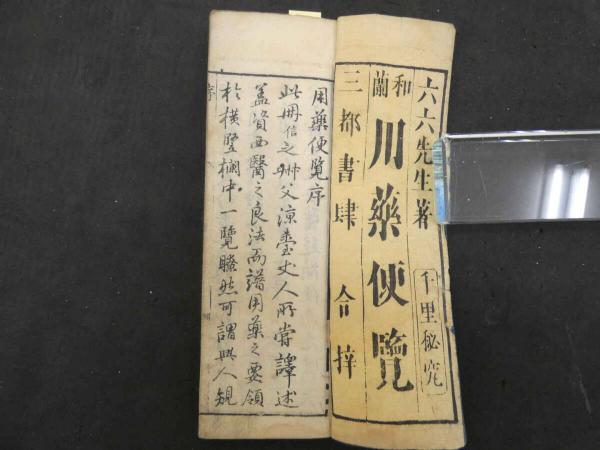 六六先生著
千里秘究
和蘭
用藥便覽
三都書肆 合梓
用藥便覽序
此冊信之叔父涼臺丈人所嘗譯述
蓋資西醫之良法而譜用藥之要領
於橫竪欄中一覽瞭然可謂與人規
序